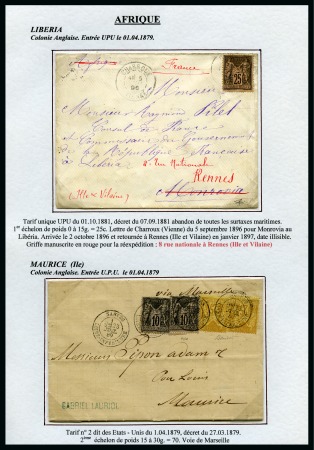 AFRIQUE
LIBERIA
Colonie Anglaise. Entrée UPU le 01.04.1879.
Afrique France
CHARROUX
25
Monsieur
Monsieur Raymond Pilet
Consul de France
et Commissaire du Gouvernement
de la République Française
à Libéria
8 rue Nationale
Rennes
(Ille & Vilaine)
Monrovia
Tarif unique UPU du 01.10.1881, décret du 07.09.1881 abandon de toutes les surtaxes maritimes.
1er échelon de poids 0 à 15g. = 25c. Lettre de Charroux (Vienne) du 5 septembre 1896 pour Monrovia au
Libéria. Arrivée le 2 octobre 1896 et retournée à Rennes (Ille et Vilaine) en janvier 1897, date illisible.
Griffe manuscrite en rouge pour la réexpédition : 8 rue nationale à Rennes (Ille et Vilaine)
MAURICE (Ile)
Colonie Anglaise. Entrée U.P.U. le 01.04.1879
via Marseille
10 10
NANTES
Messieurs Pipon adam &
Port Louis
Maurice
GABRIEL LAURIOL
Tarif n° 2 dit des Etats - Unis du 1.04.1879, décret du 27.03.1879.
2ème échelon de poids 15 à 30g. = 70. Voie de Marseille